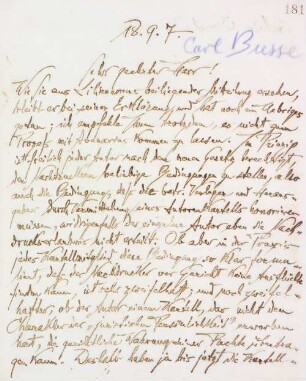 181
18.9.7.
Carl Busse
Sehr geehrter Herr!
Wie Sie aus Liliencrons beiliegender Mitteilung ersehen,
bleibt er bei seinen Entschlüssen, und hat noch im Uebrigen
getan; ich empfahle ihm trotzdem, es nicht zum
Prozeß mit kommen zu lassen. Im Prinzip
ist freilich jeder Autor nach dem neuen Gesetz berechtigt,
den Nachdruckern beliebige Bedingungen zu stellen, also
auch die Bedingung, daß die betr. Verleger und Heraus-
geber durch Vermittlung eines Autorenkartells honorieren
müssen, widrigenfalls der einzelne Autor eben die Nach-
druckserlaubnis nicht erteilt. Ob aber in der Praxis
jedes Kartellmitglied diese Bedingung so klar formu-
liert, daß der Nachdrucker vor Gericht keine Ausflüchte
finden kann, ist sehr zweifelhaft; und noch zweifel-
hafter, ob der Autor einem Kartell, das nicht den
Charakter der "juristischen Persönlichkeit" erworben
hat, die gerichtliche Wahrnehmung seiner Rechte übertra-
gen kann. Deshalb haben ja bis jetzt die Kartell-